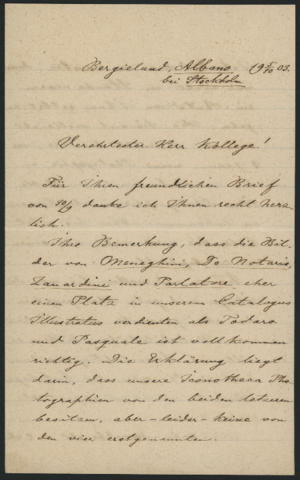 Bergielund, Albano 19 5/10 03.
bei Stockholm
Verehrtester Herr Kollege!
Für Ihren freundlichen Brief
von 30/9 danke ich Ihnen recht herz-
lich.
Ihre Bemerkung, dass die Bil-
der von Meneghini, De Notaris,
Zanardini und Parlatore eher
einen Platz in unserem Catalogus
Illustratus verdienten als Todaro
und Pasquale ist vollkommen
richtig. Die Erklärung liegt
darin, dass unsere Iconotheca Pho-
tographien von den beiden letzeren
besitzen, aber-leider-keine von
den vier erstgenannten.